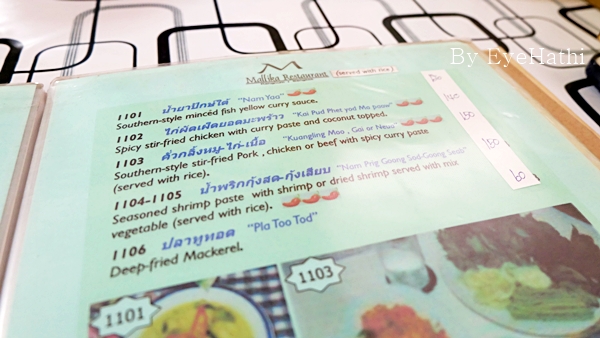 By EyeHathi
Mallika Restaurant (served with rice)
1101 น้ำยาปักษ์ใต้ "Nam Yaa"
Southern-style minced fish yellow curry sauce.
1102 ไก่ผัดเผ็ดยอดมะพร้าว "Kai Pud Phet yod Ma praw"
Spicy stir-fried chicken with curry paste and coconut topped.
150
1103 คั่วกลิ้งหมู-ไก่-เนื้อ "Kuangling Moo , Gai or Neua"
Southern-style stir-fried Pork , chicken or beef with spicy curry paste
(served with rice).
150
1104-1105 น้ำพริกกุ้งสด-กุ้งเสียบ "Nam Prig Goong Sod-Goong Seab"
Seasoned shrimp paste with shrimp or dried shrimp served with mix
vegetable (served with rice).
60
1106 ปลาทูทอด "Pla Too Tod"
Deep-fried Mackerel.
1101
1103